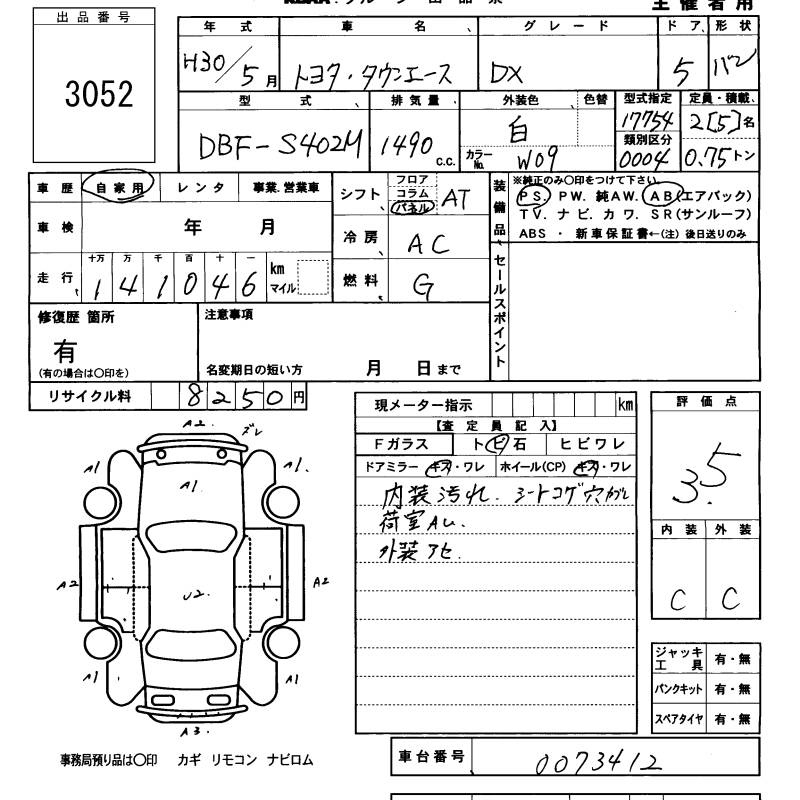 出品番号
3052
主催者用
年式 車名 グレード ドア 形状
H30/5月 トヨタ・タウンエース DX 5 バン
型式 排気量 外装色 色替 型式指定 定員・積載
DBF-S402M 1490c.c. 白 カラーNo. W09 17754 2[5]名
類別区分
0004 0.75トン
車歴 自家用 レンタ 事業.営業車
車検 年 月
走行 十万 万 千 百 十 一
141046 km マイル
シフト フロア コラム パネル AT
冷房 AC
燃料 G
装備品 ※純正のみ〇印をつけて下さい。
PS. PW. 純AW. AB(エアバック)
TV. ナビ. カワ. SR(サンルーフ)
ABS ・ 新車保証書←(注) 後日送りのみ
セールスポイント
修復歴 箇所
有
(有の場合は〇印を)
注意事項
名変期日の短い方 月 日まで
リサイクル料 8250円
現メーター指示 km
【査定員記入】
Fガラス トビ石 ヒビワレ
ドアミラー キズ・ワレ ホイール(CP) キズ・ワレ
内装汚れ. シートコゲ穴
荷室AU.
外装アセ.
評価点
3.5
内装 外装
C C
A2. ズレ
A1 A1
A1.
A2 U2. A2
A1 A1
A3.
ジャッキ工具 有・無
パンクキット 有・無
スペアタイヤ 有・無
事務局預り品は〇印 カギ リモコン ナビロム
車台番号 0073412